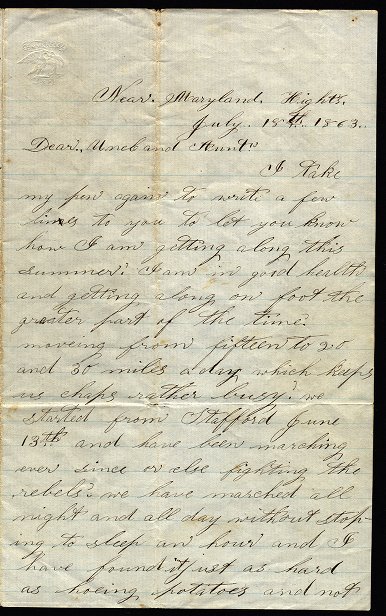 Near. Maryland. Hights.
July. 18th. 1863.
Dear. Uncl and Aunt"
I take
my pen again to write a few
times to you to let you know
how I am getting along this
summer. I am in good health
and getting along on foot the
greater part of the time.
moveing from fifteen to 20
and 30 miles a day which keeps
us chaps rather busy. we
started from Stafford June
13th and have been marching
ever since or else fighting the
rebels. we have marched all
night and all day without stop-
ing to sleep an hour and I
have found it just as hard
as hoeing potatoes and not